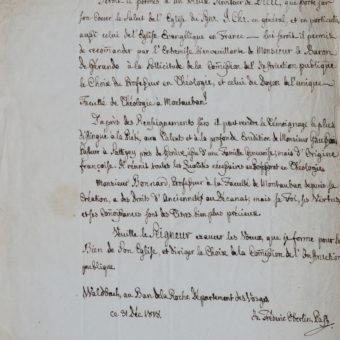 permis à un vieux Serviteur de Dieu, que porte sur
son Coeur le Salut de l'Eglise de Jés. Chr. en général, et en particulier
aussi celui de l'Eglise Evangélique en France — lui soit-il permis
de recommander par l'Entremise bienveuillante de Monsieur le Baron
de Gérando à la Sollicitude de la Comission de l'Instruction publique
le Choix du Professeur en Théologie, et celui du Doyen de l'unique
Faculté de Théologie à Montauban.
D'après des Renseignements sûrs il peut rendre le Témoignage le plus
distingué à la Piété, aux Talents et à la profonde Erudition de Monsieur
Pasteur à près de d'une Famille mais d'Origine
françoise. Il réunit toutes les Qualités requises au Professeur en Théologie
Monsieur Bonnard, Professeur à la Faculté de Montauban depuis sa
Création, a des Droits d'Ancienneté au Décanat; mais sa Foi, ses Vertus
et ses Conoissances sont des Titres bien plus précieux.
Veuille le Seigneur exaucer les Voeux, que je forme pour le
Bien de Son Eglise, et diriger le Choix de la Comission de l'Instruction
publique.
Waldbach, au Ban de la Roche, Département des Vosges
ce 31 Déc. 1818.
Fréderic Oberlin, Past.